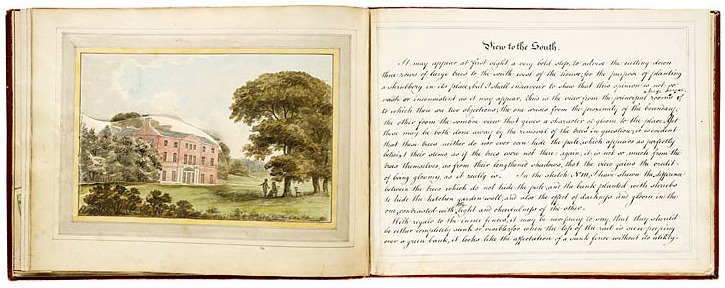 View to the South.
It may appear at first sight a very bold step, to advise the cutting down
three rows of large trees to the south west of the house, for the purpose of planting
a shrubbery in its place, but I shall endeavour to show that this opinion is not so
rash or inconsistent as it may appear. This is the view from the principal rooms of a large house
to which there are two objections; the one arises from the proximity of the boundary,
the other from the sombre view that gives a character of gloom to the place. Yet
these may be both done away by the removal of the trees in question; it is evident
that these trees neither do nor ever can hide the pale, which appears as perfectly
below their stems as if the trees were not there: again, it is not so much from the
trees themselves, as from their lengthened shadows, that the view gains the credit
of being gloomy, as it really is. In the sketch No. III, I have shewn the difference
between the trees which do not hide the pale, and the bank planted with shrubs
to hide the kitchen garden wall; and also the effect of darkness and gloom in the
one, contrasted with the light and chearfulness of the other.
With regard to the inner fences, it may be necessary to say, that they should
be either completely sunk or visible; for when the top of the rail is seen peeping
over a green bank, it looks like the affectation of a sunk fence without its utility.